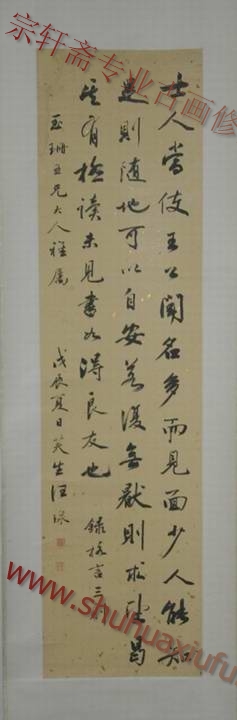 宗轩斋专业古画修
士人当使王公闻名多而见面少人能知
足则随地可以自安若复无厌则求望曷
其有极读未见书如得良友也 录格言三则
玉珊五兄大人雅属
戊辰夏日笑生汪
www.shuhuaxiufu